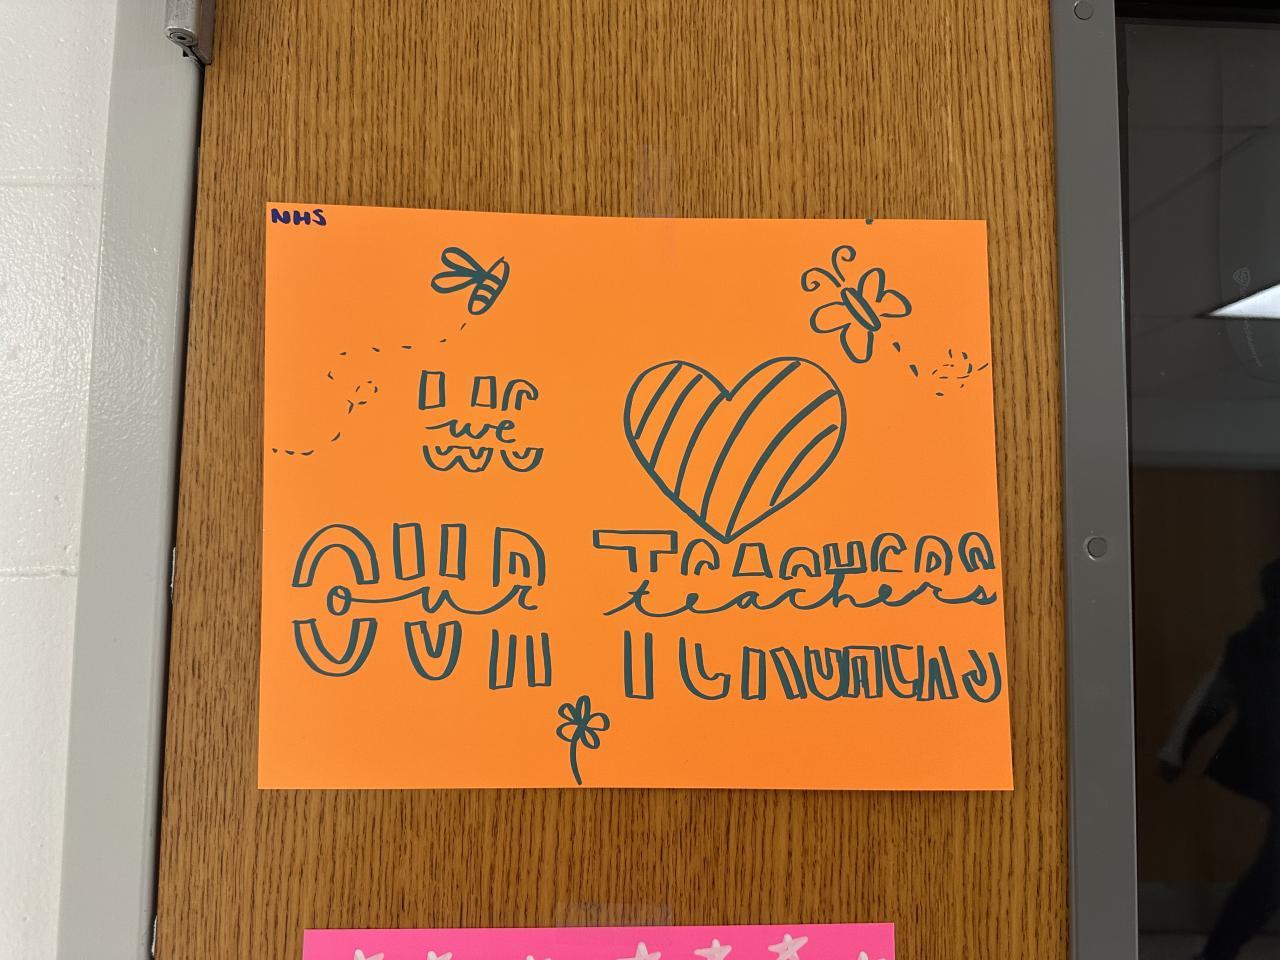 NHS
we
our teachers